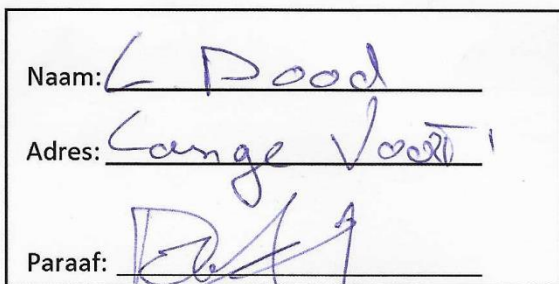 Naam: L Dood
Adres: Lange Voort 1
Paraaf: